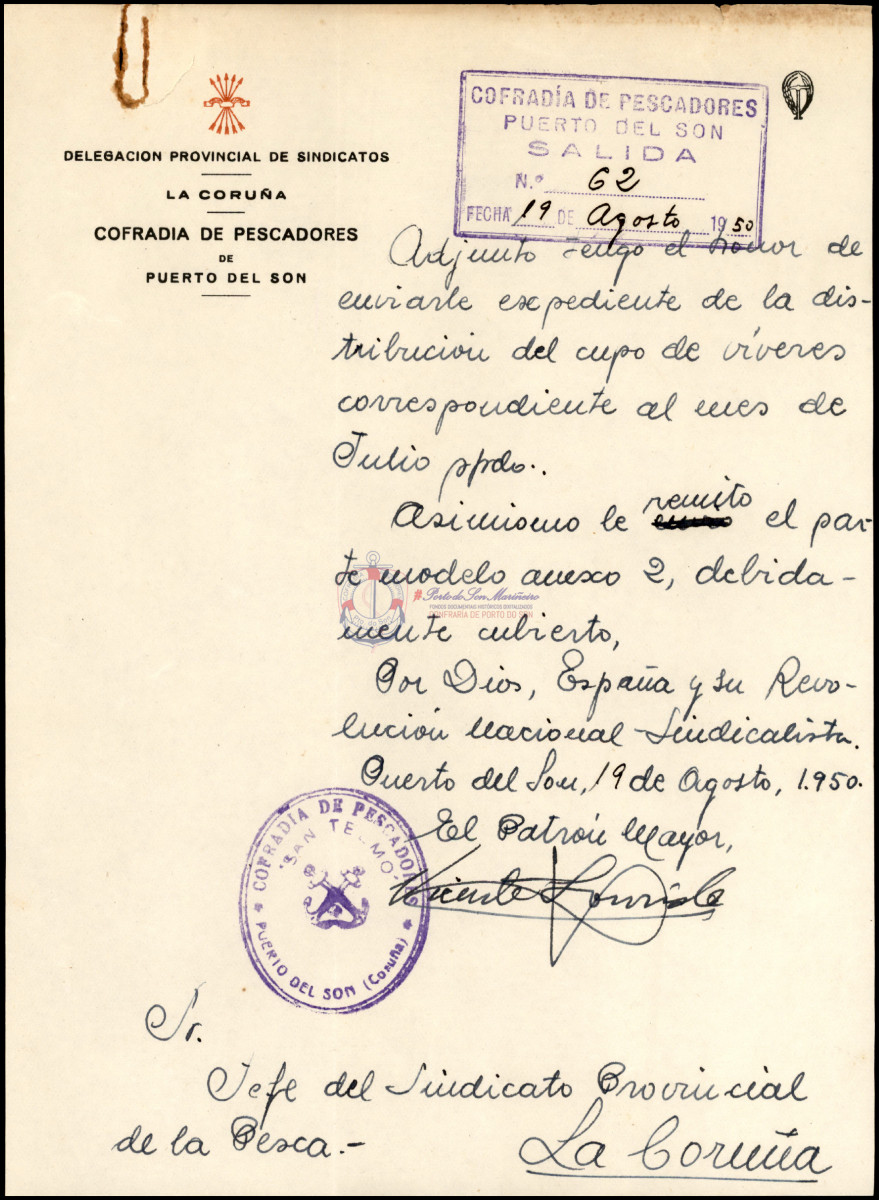 DELEGACION PROVINCIAL DE SINDICATOS
LA CORUÑA
COFRADIA DE PESCADORES
DE
PUERTO DEL SON
COFRADÍA DE PESCADORES
PUERTO DEL SON
SALIDA
N.º 62
FECHA 19 DE Agosto 1950
Adjunto tengo el honor de
enviarle expediente de la dis-
tribución del cupo de víveres
correspondiente al mes de
Julio ppdo..
Asimismo le remito el par-
te modelo anexo 2, debida-
mente cubierto,
#PortodoSonMariñeiro
FONDOS DOCUMENTAIS HISTÓRICOS DIXITALIZADOS
CONFRARÍA DE PORTO DO SON
Por Dios, España y su Revo-
lución Nacional-Sindicalista.
Puerto del Son, 19 de Agosto, 1.950.
El Patrón Mayor,
Vicente
COFRADIA DE PESCADORES
"SAN TELMO"
PUERTO DEL SON (Coruña)
Sr.
Jefe del Sindicato Provincial
de la Pesca.-
La Coruña